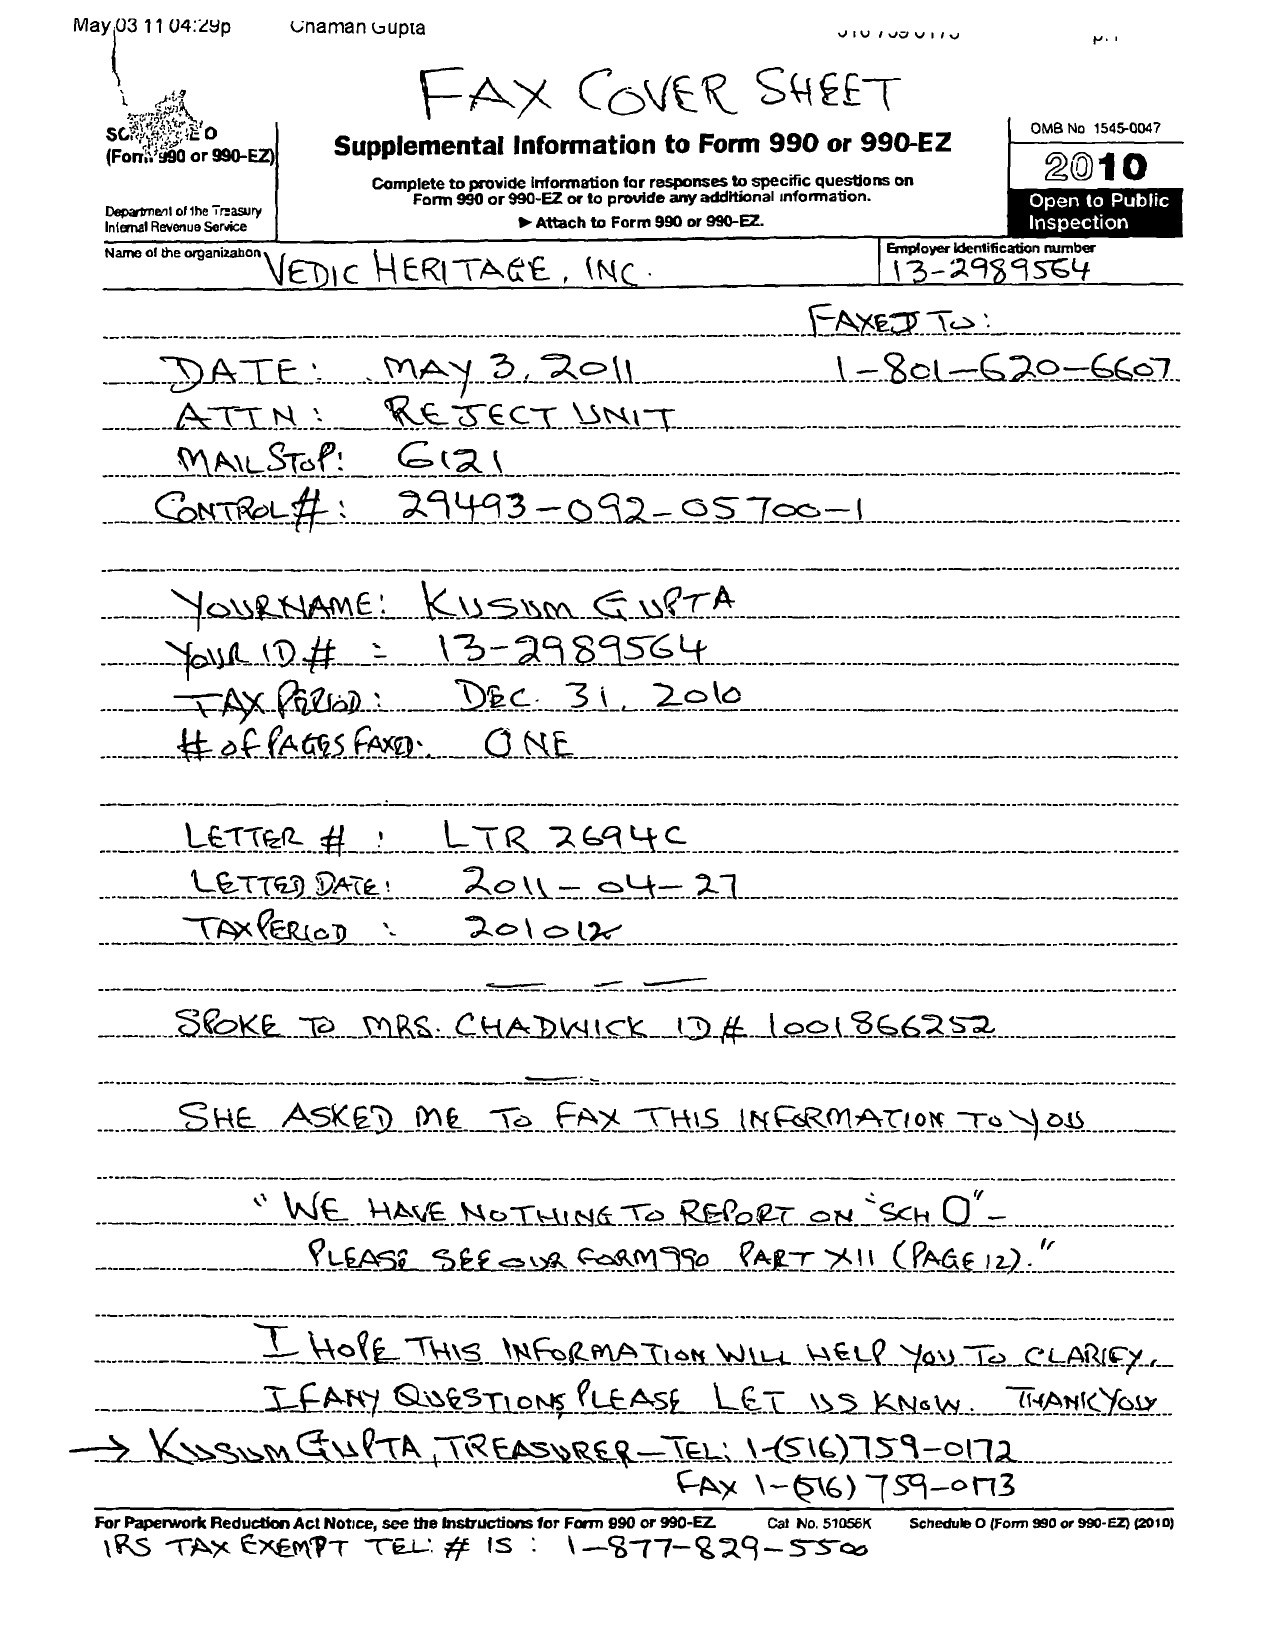 May 03 11 04:29p Chaman Gupta p.1
FAX COVER SHEET
(Form 990 or 990-EZ)
Department of the Treasury
Internal Revenue Service
Supplemental Information to Form 990 or 990-EZ
Complete to provide information for responses to specific questions on
Form 990 or 990-EZ or to provide any additional information.
► Attach to Form 990 or 990-EZ.
OMB No 1545-0047
2010
Open to Public
Inspection
Name of the organization VEDIC HERITAGE, INC.
Employer identification number
13-2989564
FAXED TO:
DATE: MAY 3, 2011 1-801-620-6607
ATTN: REJECT UNIT
MAIL STOP: 6121
CONTROL #: 29493-092-05700-1
YOUR NAME: KUSUM GUPTA
YOUR ID # : 13-2989564
TAX PERIOD: DEC. 31, 2010
# OF PAGES FAXED: ONE
LETTER # : LTR 2694C
LETTED DATE: 2011-04-27
TAX PERIOD : 201012
SPOKE TO MRS. CHADWICK ID# 1001866252
SHE ASKED ME TO FAX THIS INFORMATION TO YOU
"WE HAVE NOTHING TO REPORT ON "SCH O" -
PLEASE SEE OUR FORM 990 PART XII (PAGE 12)."
I HOPE THIS INFORMATION WILL HELP YOU TO CLARIFY.
IF ANY QUESTIONS, PLEASE LET US KNOW. THANK YOU
→ KUSUM GUPTA, TREASURER - TEL: 1-(516)759-0172
FAX 1-(516) 759-0173
For Paperwork Reduction Act Notice, see the Instructions for Form 990 or 990-EZ Cat No. 51056K Schedule O (Form 990 or 990-EZ) (2010)
IRS TAX EXEMPT TEL: # IS : 1-877-829-5500